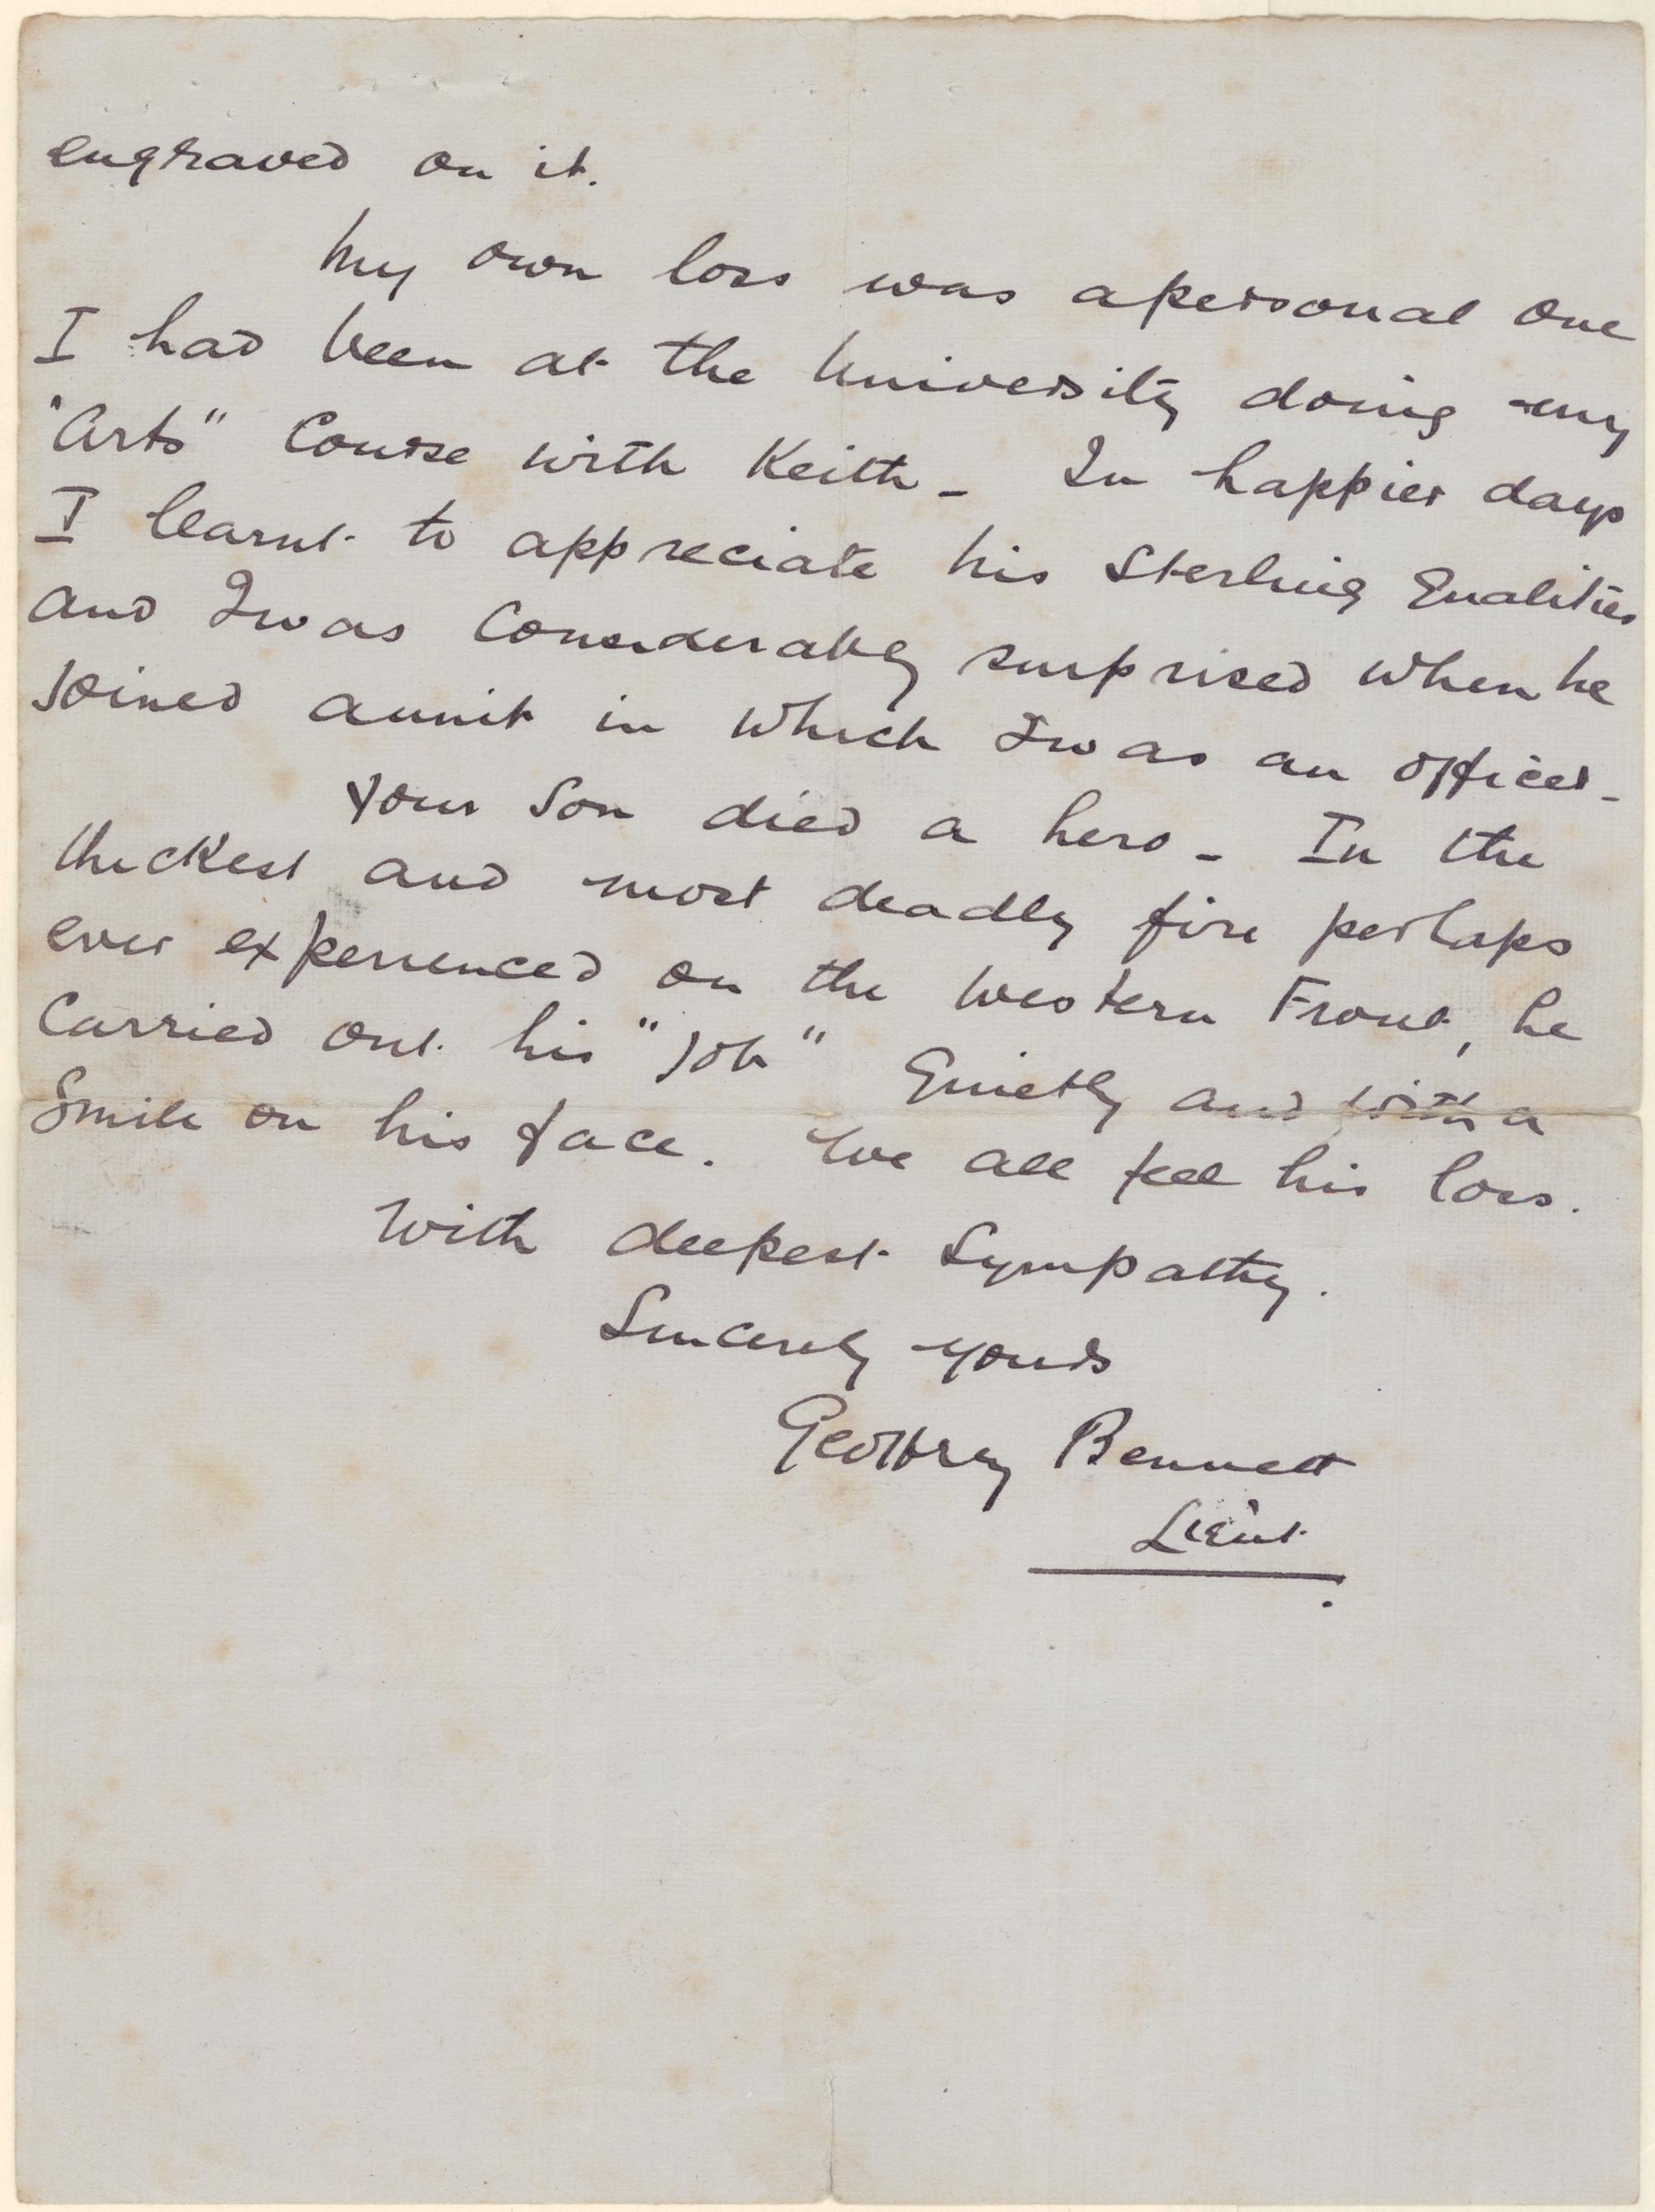 engraved on it.
My own loss was a personal one
I had been at the University doing my
"Arts" Course with Keith - In happier days
I learnt to appreciate his Sterling Qualities
and I was Considerably surprised when he
joined a unit in which I was an officer -
Your Son died a hero - In the
thickest and most deadly fire perhaps
ever experienced on the Western Front, he
Carried out his "job" Quietly and with a
Smile on his face. We all feel his loss.
With deepest Sympathy.
Sincerely yours
Geoffrey Bennett
Lieut.